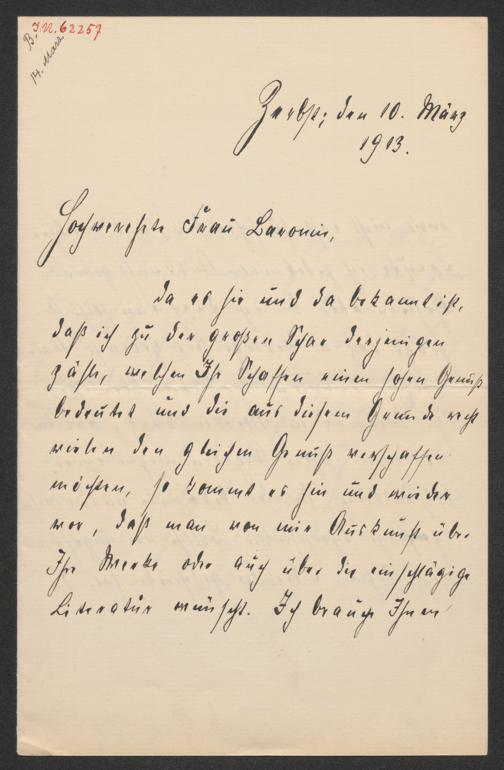 J.N. 62257
B.
14. März
Zerbst, den 10. März
1913.
Hochverehrte Frau Baronin,
da es hie und da bekannt ist,
daß ich zu der großen Schar derjenigen
zähle, welchen Ihr Schaffen einen hohen Genuß
bedeutet und die aus diesem Grunde recht
vielen den gleichen Genuß verschaffen
möchten, so kommt es hin und wieder
vor, daß man von mir Auskunft über
Ihre Werke oder auch über die einschlägige
Literatur wünscht. Ich brauche Ihnen